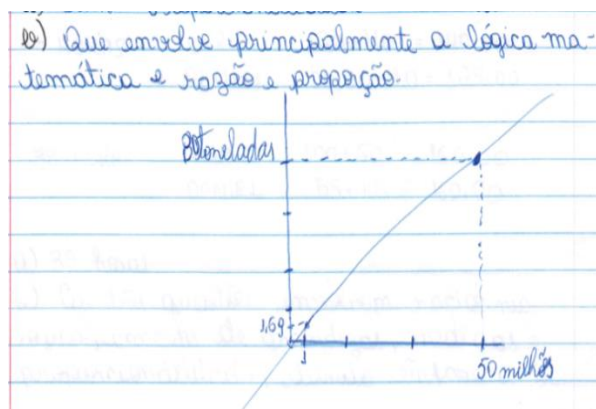 b) Que envolve principalmente a lógica ma-
temática e razão e proporção.
80toneladas
1,6g
1
50 milhões